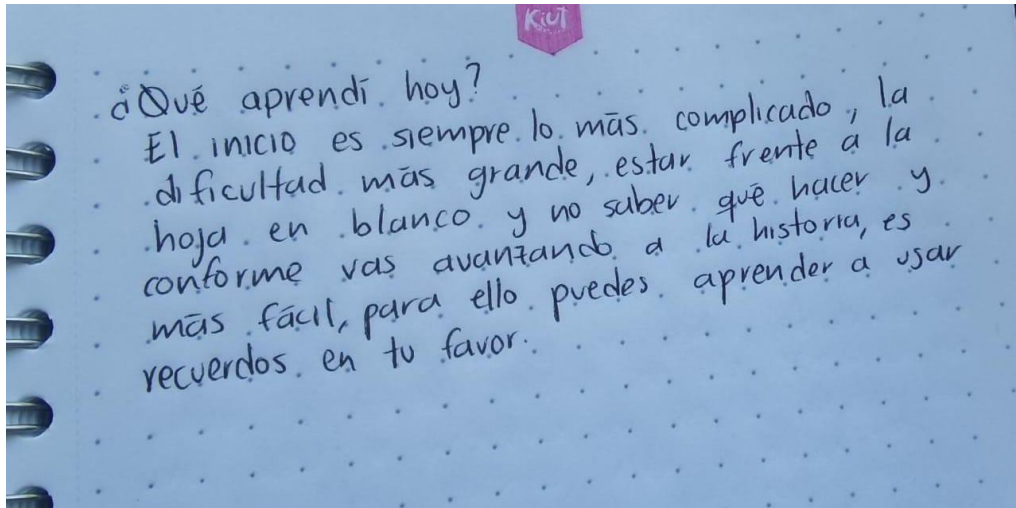 KiUT
¿Qué aprendí hoy?
El inicio es siempre lo más complicado, la
dificultad más grande, estar frente a la
hoja en blanco y no saber qué hacer y
conforme vas avanzando a la historia, es
más fácil, para ello puedes aprender a usar
recuerdos en tu favor.